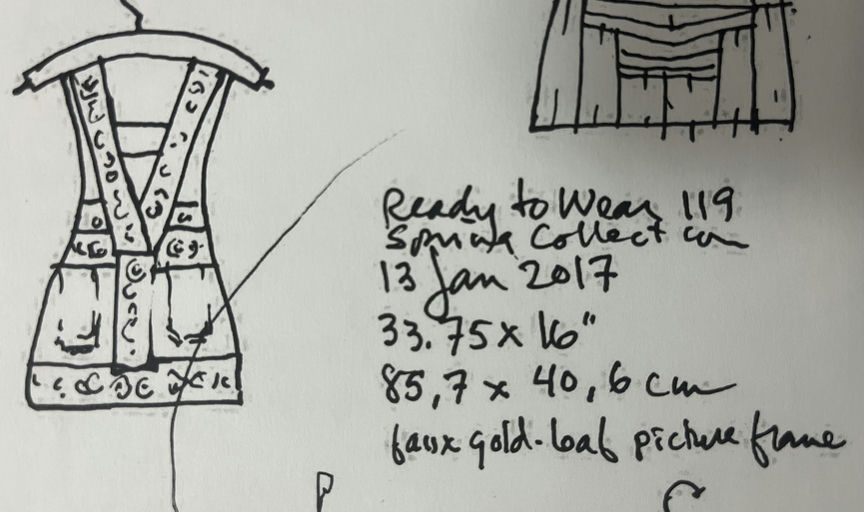 Ready to Wear 119
Spring Collection
13 Jan 2017
33.75 x 16"
85,7 x 40,6 cm
faux gold-leaf picture frame